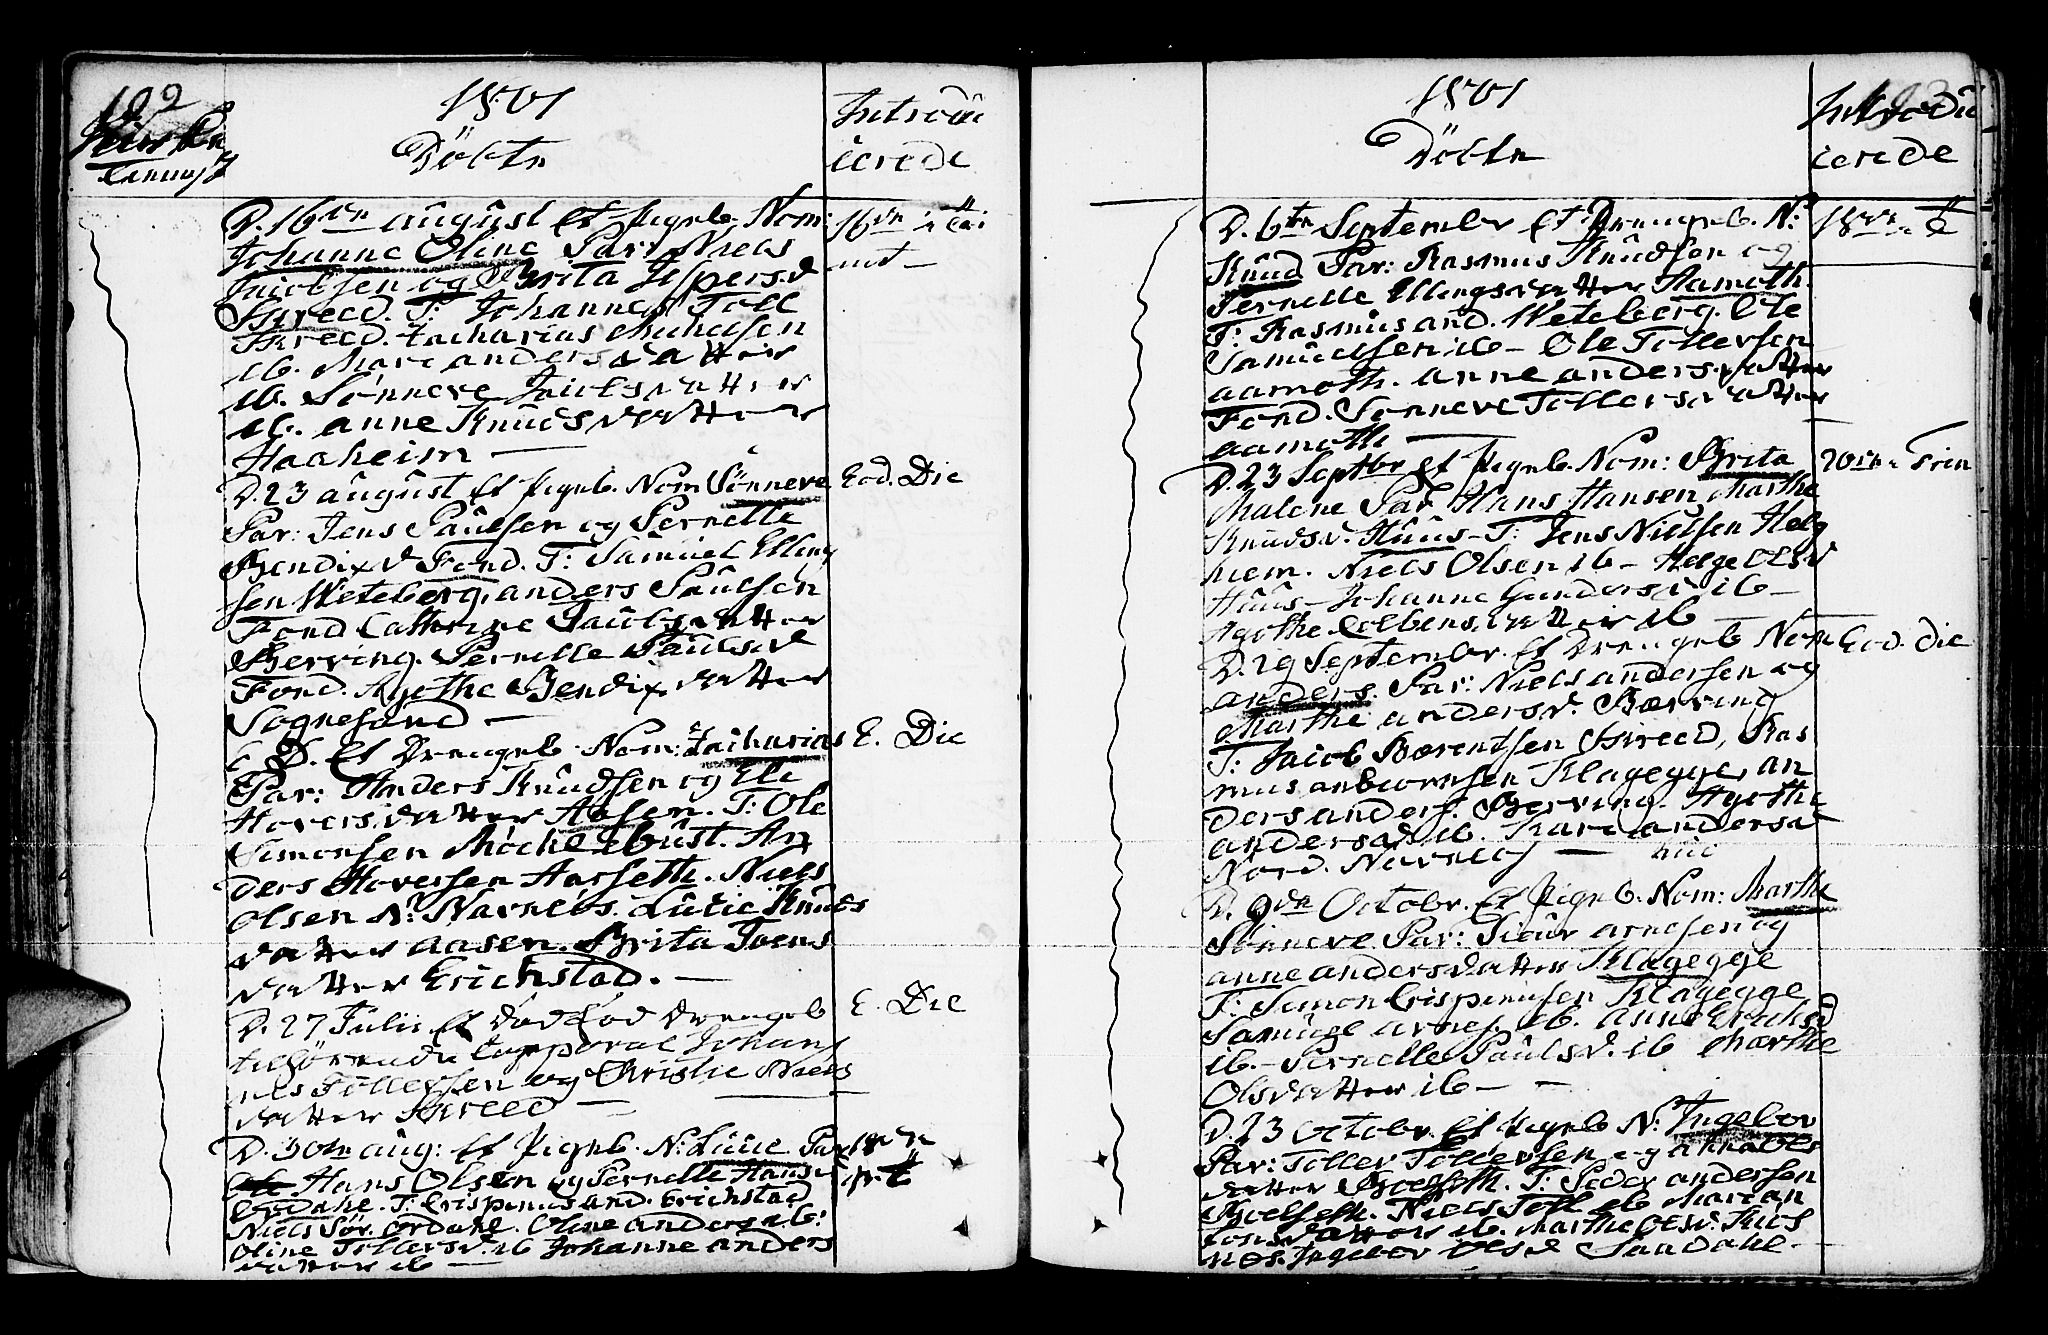 192
1801
Döbte
Introdu
cerede
D. 16de august Et Pigeb. Nom:
Johanne Oline Par: Niels
Jacobsen og Brita Jespersd
Skreed. T: Johannes Toll
Skreed. Zacharias
ib. Mari andersdatter
ib. Sönneve Jacobsdatter
ib. anne Knudsdatter
Haaheim —
D. 23 august Et Pigeb. Nom Sönneve
Eod. Die
Par: Jens Paulsen og Pernelle
Bendixd Fond. T: Samuel Elling
sen Weteberg, anders Paulsen
Fond Cathrine Jacobsdatter
Berving. Pernelle Paulsd
Fond. Agothe Bendixdatter
Sognesand —
E. D. Et Drengeb. Nom: Zacharias
E. Die
Par: Anders Knudsen og Eli
Hoversdatter Aasen. T: Ole
Simonsen Möchelbust. An
ders Hoversen Aarseth. Niels
Olsen N: Navnløs. Lucie Knuds
datter aasen. Brita Joens
datter Erichstad. —
D. 27 Julii Et Död Föd Drengeb
E. Die
tilhörende Johan
nes Tollefsen og Christie Niels
datter Skreed —
D. 30te aug: Et Pigeb. N: Lucie Par
18de
Hans Olsen og Pernelle Hansd
Ordahl. T: Crispinus and. Erichstad
Niels Sör. Ordahl. Oline andersd ib:
Oline Tollersd. ib Johanne anders
datter ib —
1801
Döbte
Introdu
cerede
D. 6te September Et Drengeb. N:
Knud Par: Rasmus Knudsen og
Pernelle Ellingsdatter Aamoth.
T: Rasmus and. Weteberg. Ole
Samuelsen ib — Ole Tollersen
aamoth. anne andersdatter
Fond. Sönneve Tollersdatter
aamoth —
D. 23 Septbr Et Pigeb. Nom: Brita
Malene Par Hans Hansen Marthe
Knudsd. Huus — T: Jens Nielsen Helg
hiem. Niels Olsen ib — Helge Olsd
Huus — Johanne Gundersd ib —
Agothe Colbensdatter ib
D. 29 September. Et Drengeb Nom
Eod. Die
anders. Par: Niels andersen og
Marthe andersd. Berving
T: Jacob Berentsen Skreed, Ras
mus Klagegge, an
ders anders. Berving. Agothe
andersd ib. Kari andersd
Nord. Navnløs —
D. 9de Octobr. Et Pigeb. Nom: Marthe
Sönneve Par: Siour arnesen og
anne andersdatter Klagegge
T: Simon Crispinusen Klagegge
Samuel arnes. ib. anne Erichsd
ib. — Pernelle Paulsd. ib Marthe
Olsdatter ib — —
D. 23 Octobr. Et Pigeb N: Ingebor
Par: Toller Tollersen og anna Ols
datter Böelseth. T: Peder andersen
Böelseth. Niels Toll ib Mari an
tonsdatter ib. Marthe Olsd. Kies
nes. Ingebor Olsd Sandahl.